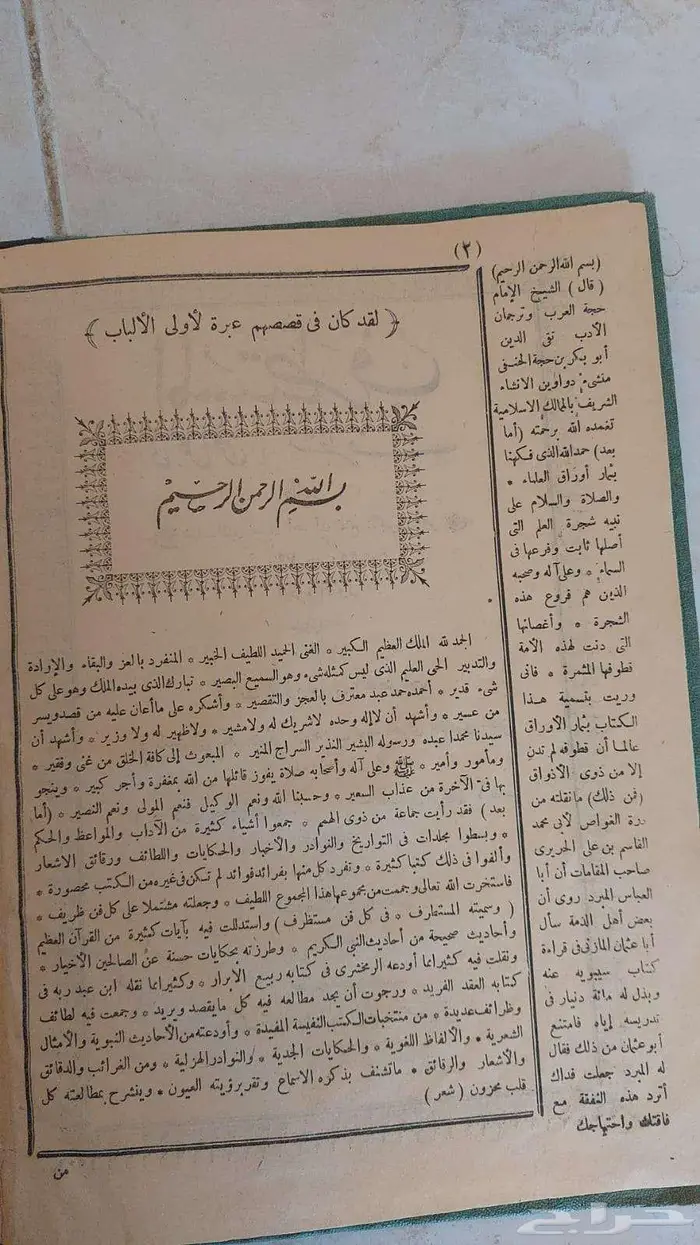 (٢)
﴿ لقد كان فى قصصهم عبرة لأولى الألباب ﴾
بسم الله الرحمن الرحيم
الحمد لله الملك العظيم الكبير * الغنى الحميد اللطيف الخبير * المنفرد بالعز والبقاء والإرادة
والتدبير الحى العليم الذى ليس كمثله شىء وهو السميع البصير * تبارك الذى بيده الملك وهو على كل
شىء قدير * أحمده حمد عبد معترف بالعجز والتقصير * وأشكره على ما أعان عليه من قصد ويسر
من عسير * وأشهد أن لا إله وحده لا شريك له ولا مشير * ولا ظهير له ولا وزير * وأشهد أن
سيدنا محمدا عبده ورسوله البشير النذير السراج المنير * المبعوث إلى كافة الخلق من غنى وفقير *
ومأمور وأمير * ﷺ وعلى آله وأصحابه صلاة يفوز قائلها من الله بمغفرة وأجر كبير * وينجو
بها فى الآخرة من عذاب السعير * وحسبنا الله ونعم الوكيل فنعم المولى ونعم النصير * (أما
بعد) فقد رأيت جماعة من ذوى الهمم * جمعوا أشياء كثيرة من الآداب والمواعظ والحكم
* وبسطوا مجلدات فى التواريخ والنوادر والأخبار والحكايات واللطائف ورقائق الاشعار
وألفوا فى ذلك كتبا كثيرة * وتفرد كل منها بفرائد فوائد لم تكن فى غيره من الكتب محصورة *
فاستخرت الله تعالى وجمعت من مجموعها هذا المجموع اللطيف * وجعلته مشتملا على كل فن ظريف *
( وسميته المستطرف * فى كل فن مستظرف) واستدللت فيه بآيات كثيرة من القرآن العظيم
وأحاديث صحيحة من أحاديث النبى الكريم * وطرزته بحكايات حسنة عن الصالحين الأخيار *
ونقلت فيه كثيرا مما أودعه الزمخشرى فى كتابه ربيع الابرار * وكثيرا مما نقله ابن عبد ربه فى
كتابه العقد الفريد * ورجوت أن يجد مطالعه فيه كل ما يقصد ويريد * وجمعت فيه لطائف
وظرائف عديدة * من منتخبات الكتب النفيسة المفيدة * وأودعته من الأحاديث النبوية والأمثال
الشعرية * والألفاظ اللغوية * والحكايات الجدية * والنوادر الهزلية * ومن الغرائب والدقائق
والأشعار والرقائق * ما تشنف بذكره الاسماع وتقر برؤيته العيون * وينشرح بمطالعته كل
قلب محزون ( شعر )
من
(بسم الله الرحمن الرحيم)
( قال ) الشيخ الإمام
حجة العرب وترجمان
الأدب تقى الدين
أبو بكر بن حجة الحنفى
منشىء دواوين الانشاء
الشريف بالممالك الاسلامية
تغمده الله برحمته (أما
بعد) حمد الله الذى فكهنا
بثمار أوراق العلماء *
والصلاة والسلام على
نبيه شجرة العلم التى
أصلها ثابت وفرعها فى
السماء * وعلى آله وصحبه
الذين هم فروع هذه
الشجرة * وأغصانها
التى دنت لهذه الأمة
قطوفها المثمرة * فانى
وريت بتسمية هذا
الكتاب بثمار الأوراق
عالما أن قطوفه لم تدن
إلا من ذوى الأذواق
(فمن ذلك) ما نقلته من
درة الغواص لأبى محمد
القاسم بن على الحريرى
صاحب المقامات أن أبا
العباس المبرد روى أن
بعض أهل الذمة سأل
أبا عثمان المازنى فى قراءة
كتاب سيبويه عنه
وبذل له مائة دينار فى
تدريسه إياه فامتنع
أبو عثمان من ذلك فقال
له المبرد جعلت فداك
أترد هذه النفقة مع
فاقتك واحتياجك
حراج